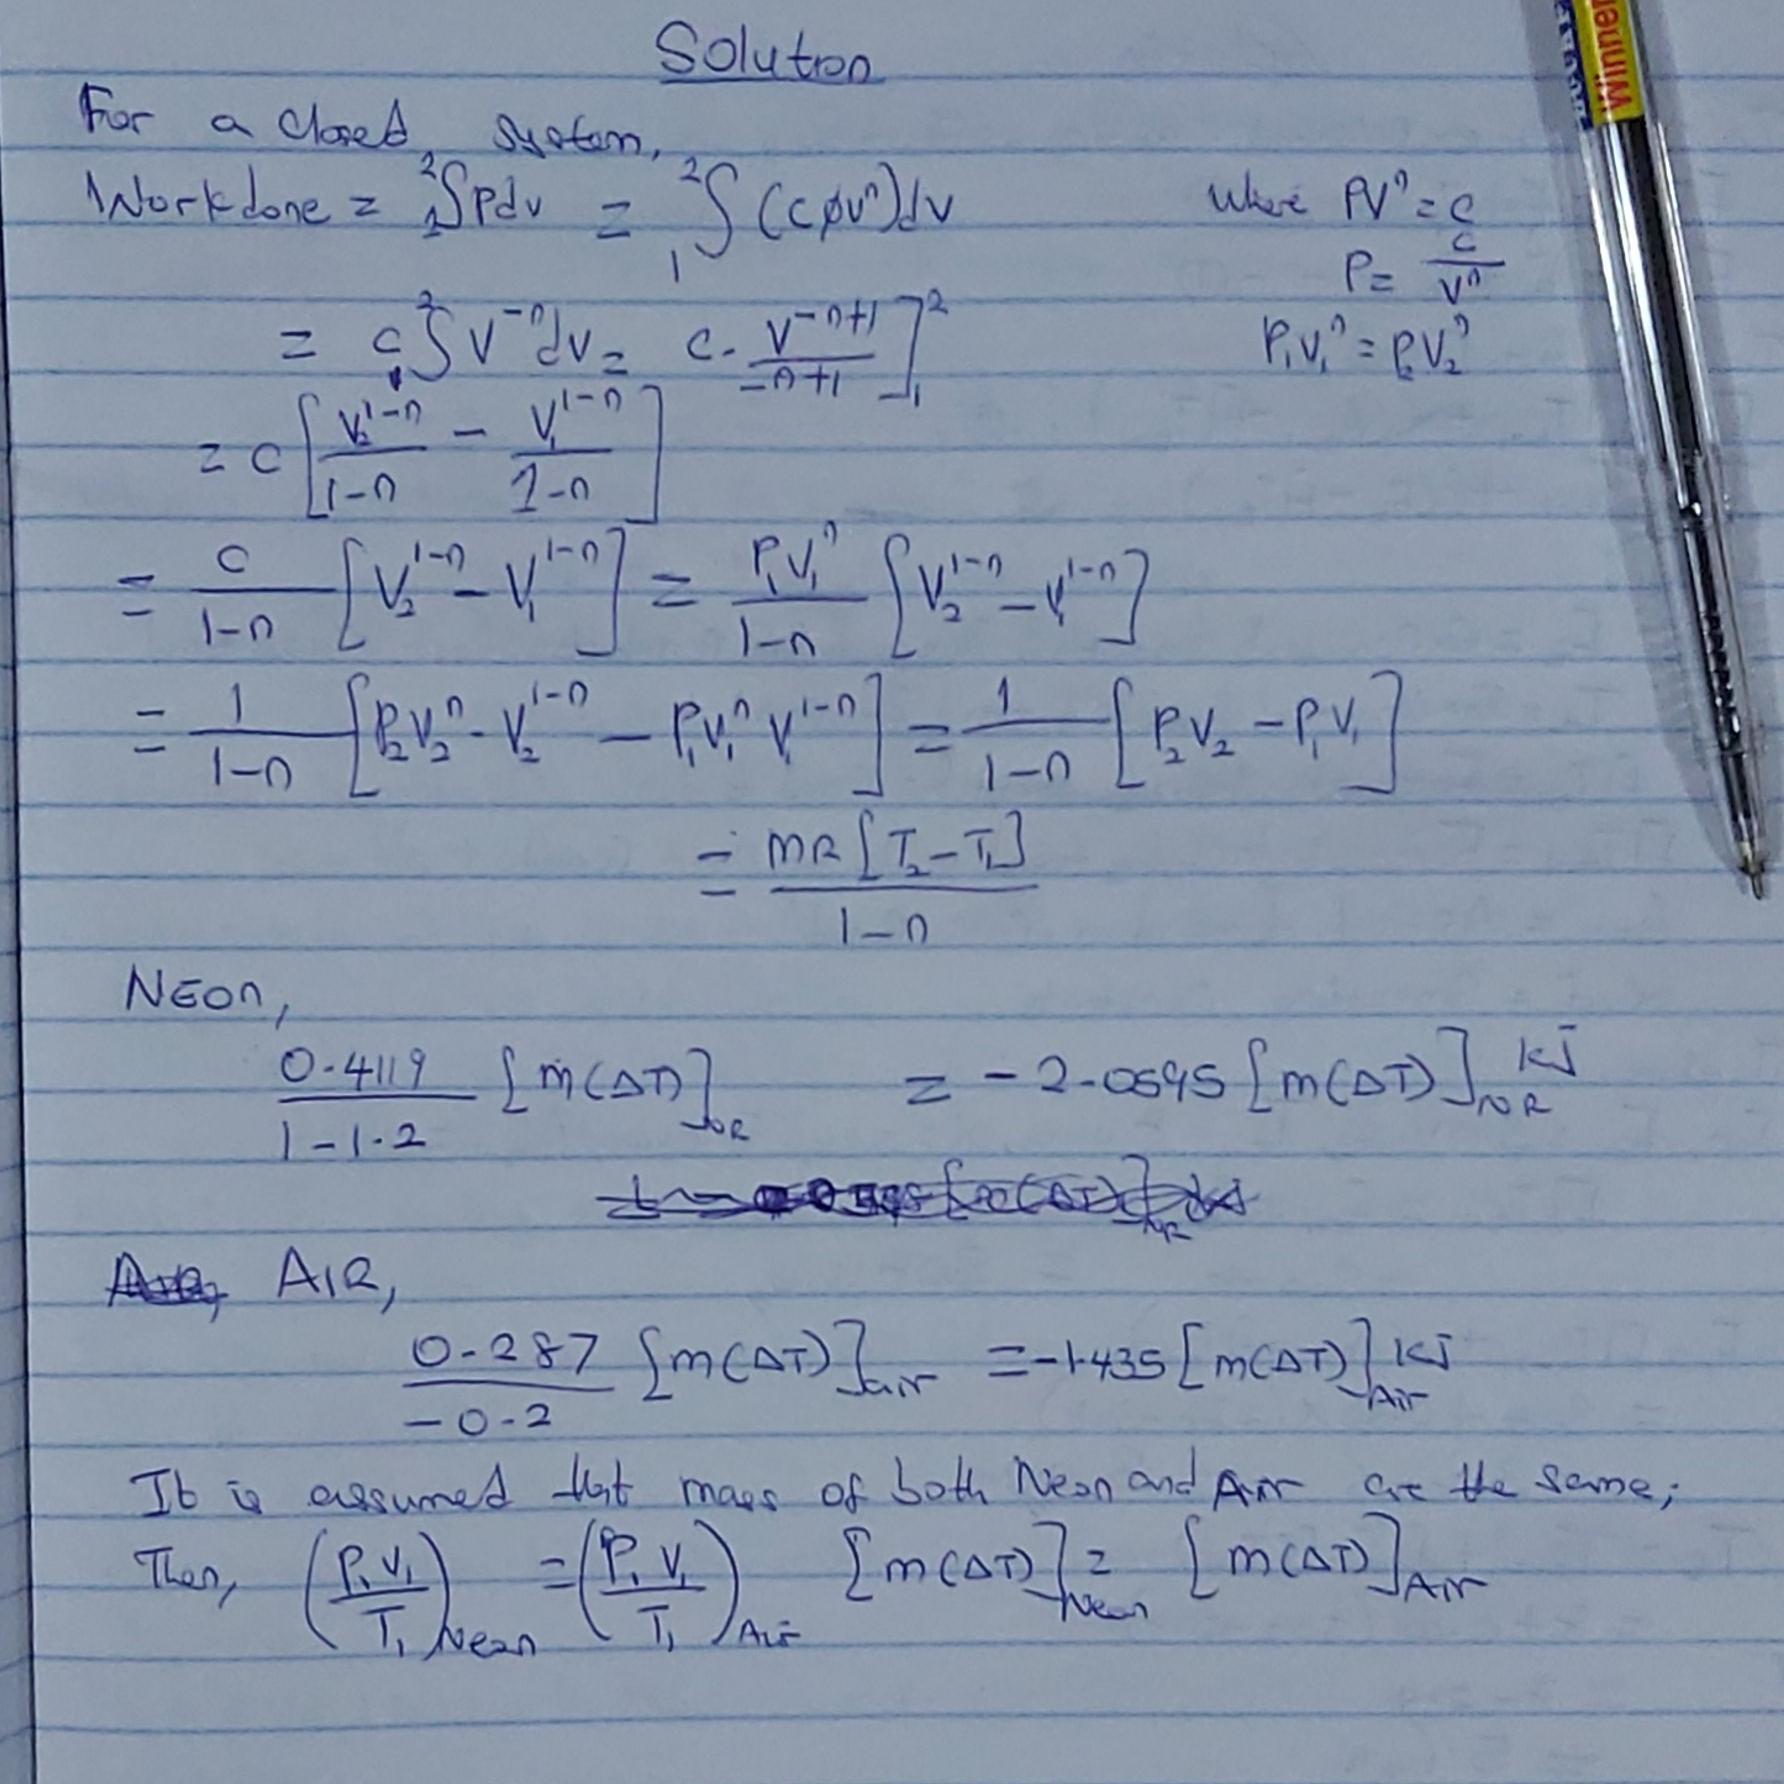 Solution
For a closed system,
Workdone = ²₁∫Pdv = ²₁∫(c/vⁿ)dv
where PVⁿ = c
P = c/Vⁿ
P₁V₁ⁿ = P₂V₂ⁿ
= c ²₁∫V⁻ⁿdv = c. V⁻ⁿ⁺¹/-n+1]²₁
= c[V₂¹⁻ⁿ/1-n - V₁¹⁻ⁿ/1-n]
= c/1-n [V₂¹⁻ⁿ - V₁¹⁻ⁿ] = P₁V₁ⁿ/1-n [V₂¹⁻ⁿ - V₁¹⁻ⁿ]
= 1/1-n [P₂V₂ⁿ - V₂¹⁻ⁿ - P₁V₁ⁿ V₁¹⁻ⁿ] = 1/1-n [P₂V₂ - P₁V₁]
= MR[T₂-T₁]/1-n
NEON,
0.4119/1-1.2 [m(ΔT)] = -2.0595 [m(ΔT)] KJ
AIR,
0.287/-0.2 [m(ΔT)]air = -1.435 [m(ΔT)]Air KJ
It is assumed that mass of both Neon and Air are the same;
Then, (P₁V₁/T₁)Neon = (P₁V₁/T₁)Air [m(ΔT)]Neon = [m(ΔT)]Air
Winner